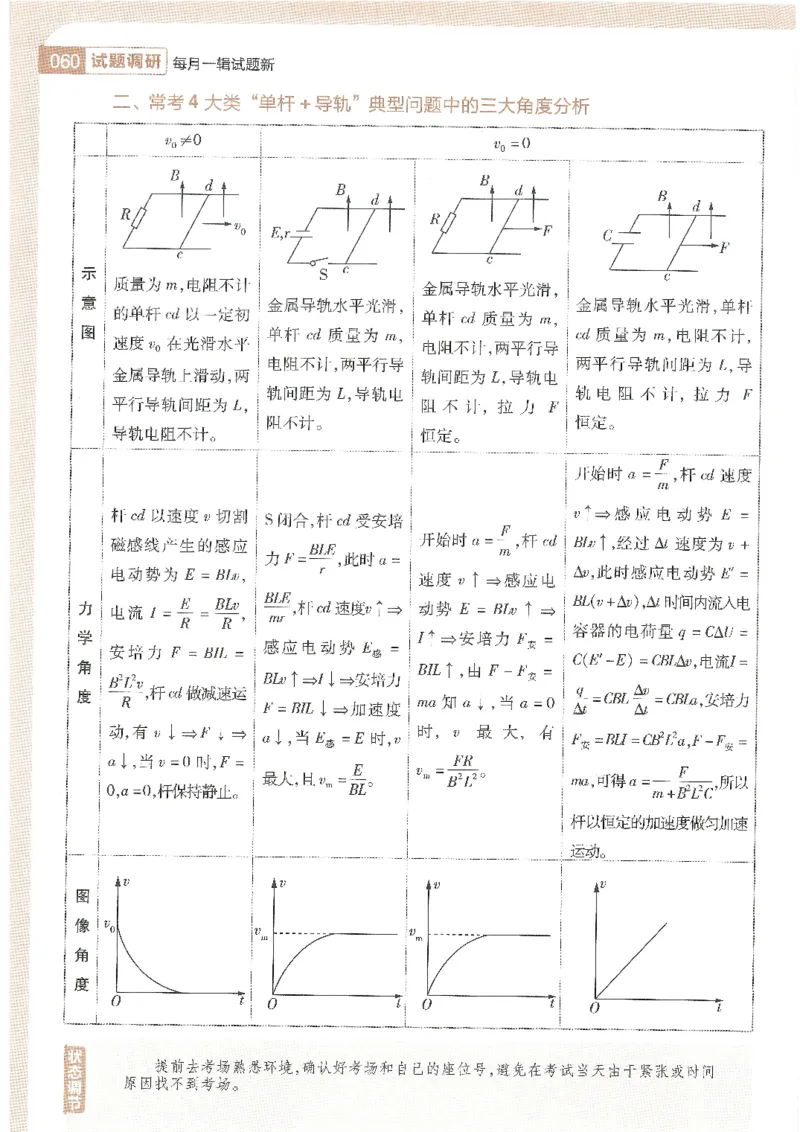 060 试题调研 每月一辑试题新
二、常考4大类“单杆+导轨”典型问题中的三大角度分析
v₀≠0
v₀=0
示
意
图
B
d
R
v₀
c
质量为m,电阻不计
的单杆cd以一定初
速度v₀在光滑水平
金属导轨上滑动,两
平行导轨间距为L,
导轨电阻不计。
B
d
E,r
S
c
金属导轨水平光滑,
单杆cd质量为m,
电阻不计,两平行导
轨间距为L,导轨电
阻不计。
B
d
R
F
c
金属导轨水平光滑,
单杆cd质量为m,
电阻不计,两平行导
轨间距为L,导轨电
阻不计,拉力F
恒定。
B
d
C
F
c
金属导轨水平光滑,单杆
cd质量为m,电阻不计,
两平行导轨间距为L,导
轨电阻不计,拉力F
恒定。
力
学
角
度
杆cd以速度v切割
磁感线产生的感应
电动势为E=BLv,
电流I=E/R=BLv/R,
安培力F=BIL=
B²L²v/R,杆cd做减速运
动,有v↓⇒F↓⇒
a↓,当v=0时,F=
0,a=0,杆保持静止。
S闭合,杆cd受安培
力F=BLE/r,此时a=
BLE/mr,杆cd速度v↑⇒
感应电动势E感=
BLv↑⇒I↓⇒安培力
F=BIL↓⇒加速度
a↓,当E感=E时,v
最大,且vₘ=E/BL。
开始时a=F/m,杆cd
速度v↑⇒感应电
动势E=BLv↑⇒
I↑⇒安培力F安=
BIL↑,由F-F安=
ma知a↓,当a=0
时,v最大,有
vₘ=FR/B²L²。
开始时a=F/m,杆cd速度
v↑⇒感应电动势E=
BLv↑,经过Δt速度为v+
Δv,此时感应电动势E′=
BL(v+Δv),Δt时间内流入电
容器的电荷量q=CΔU=
C(E′-E)=CBLΔv,电流I=
q/Δt=CBLΔv/Δt=CBLa,安培力
F安=BLI=CB²L²a,F-F安=
ma,可得a=F/(m+B²L²C),所以
杆以恒定的加速度做匀加速
运动。
图
像
角
度
v
v₀
O
t
v
vₘ
O
t
v
vₘ
O
t
v
O
t
状态调节
提前去考场熟悉环境,确认好考场和自己的座位号,避免在考试当天由于紧张或时间
原因找不到考场。